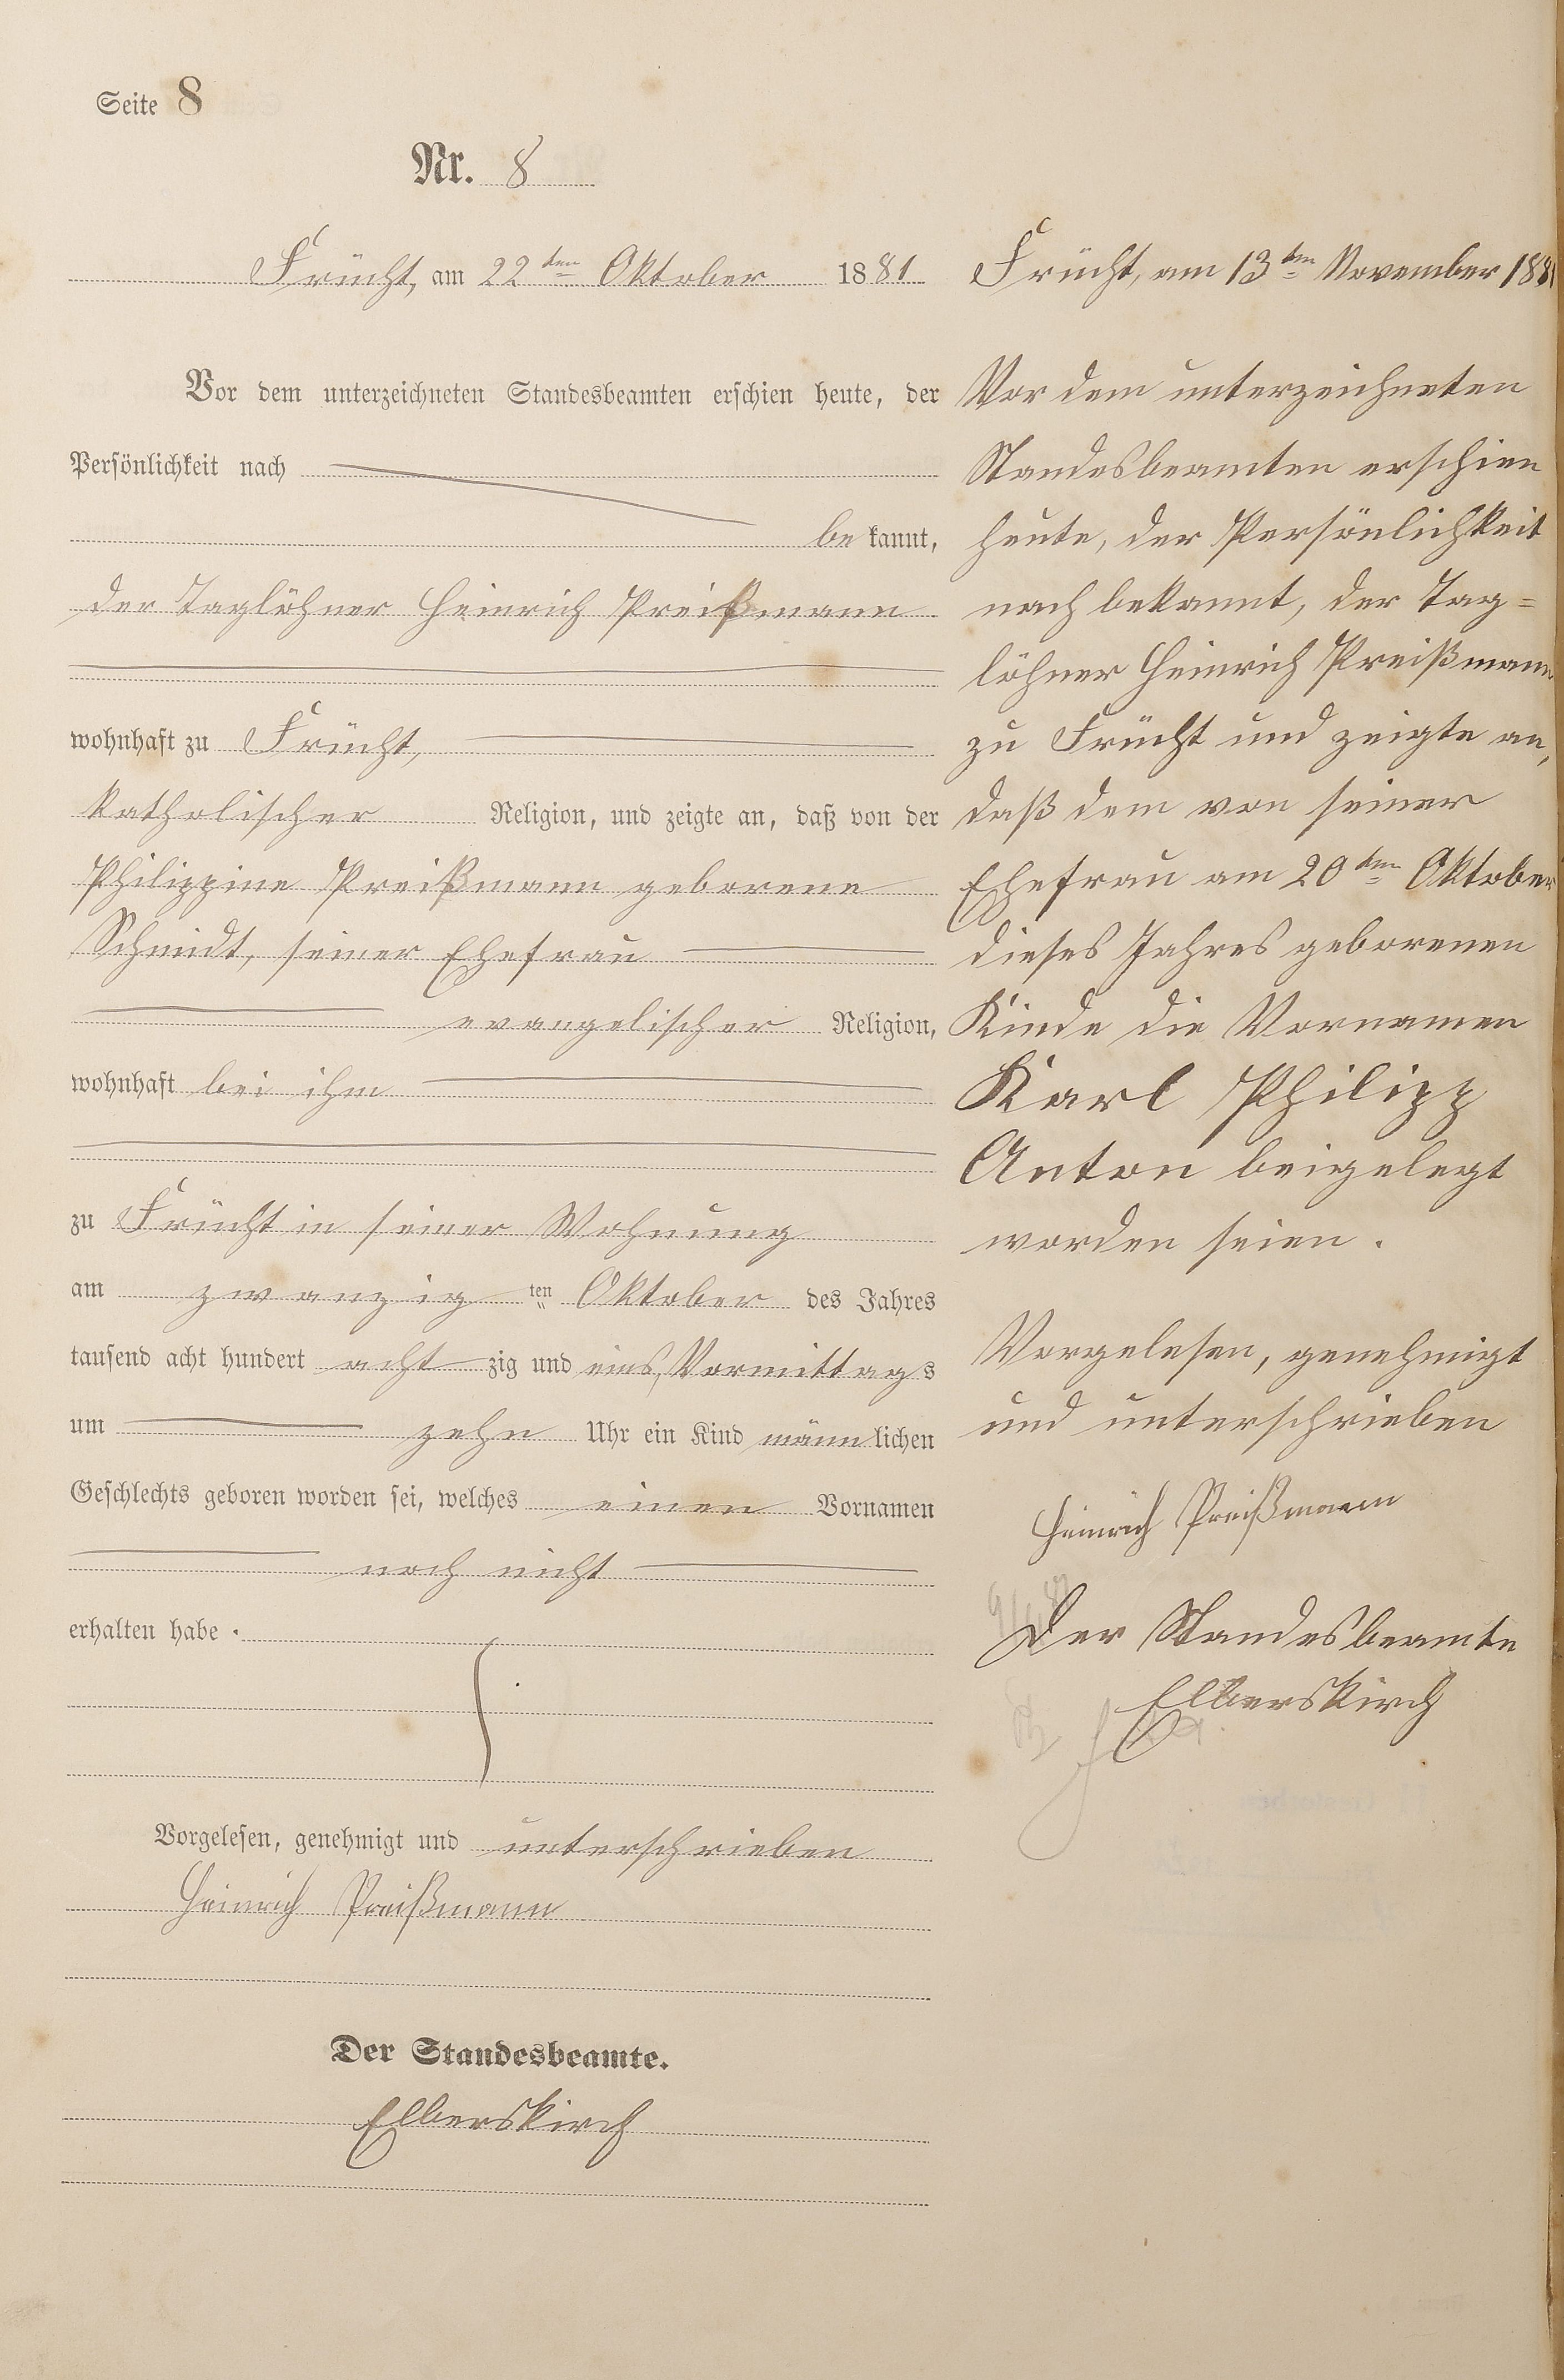 Seite 8
Nr. 8
Frücht, am 22ten Oktober 1881
Vor dem unterzeichneten Standesbeamten erschien heute, der
Persönlichkeit nach
bekannt,
der Taglöhner Heinrich Preißmann
wohnhaft zu Frücht,
katholischer Religion, und zeigte an, daß von der
Philippine Preißmann geborene
Schmidt, seiner Ehefrau
evangelischer Religion,
wohnhaft bei ihm
zu Frücht in seiner Wohnung
am zwanzigten Oktober des Jahres
tausend acht hundert achtzig und eins, Vormittags
um zehn Uhr ein Kind männlichen
Geschlechts geboren worden sei, welches einen Vornamen
noch nicht
erhalten habe.
Vorgelesen, genehmigt und unterschrieben
Heinrich Preißmann
Der Standesbeamte.
Elberskirch
Frücht, am 13ten November 1881
Vor dem unterzeichneten
Standesbeamten erschien
heute, der Persönlichkeit
nach bekannt, der Tag=
löhner Heinrich Preißmann
zu Frücht und zeigte an,
daß dem von seiner
Ehefrau am 20ten Oktober
dieses Jahres geborenen
Kinde die Vornamen
Karl Philipp
Anton beigelegt
worden seien.
Vorgelesen, genehmigt
und unterschrieben
Heinrich Preißmann
Der Standesbeamte
Elberskirch